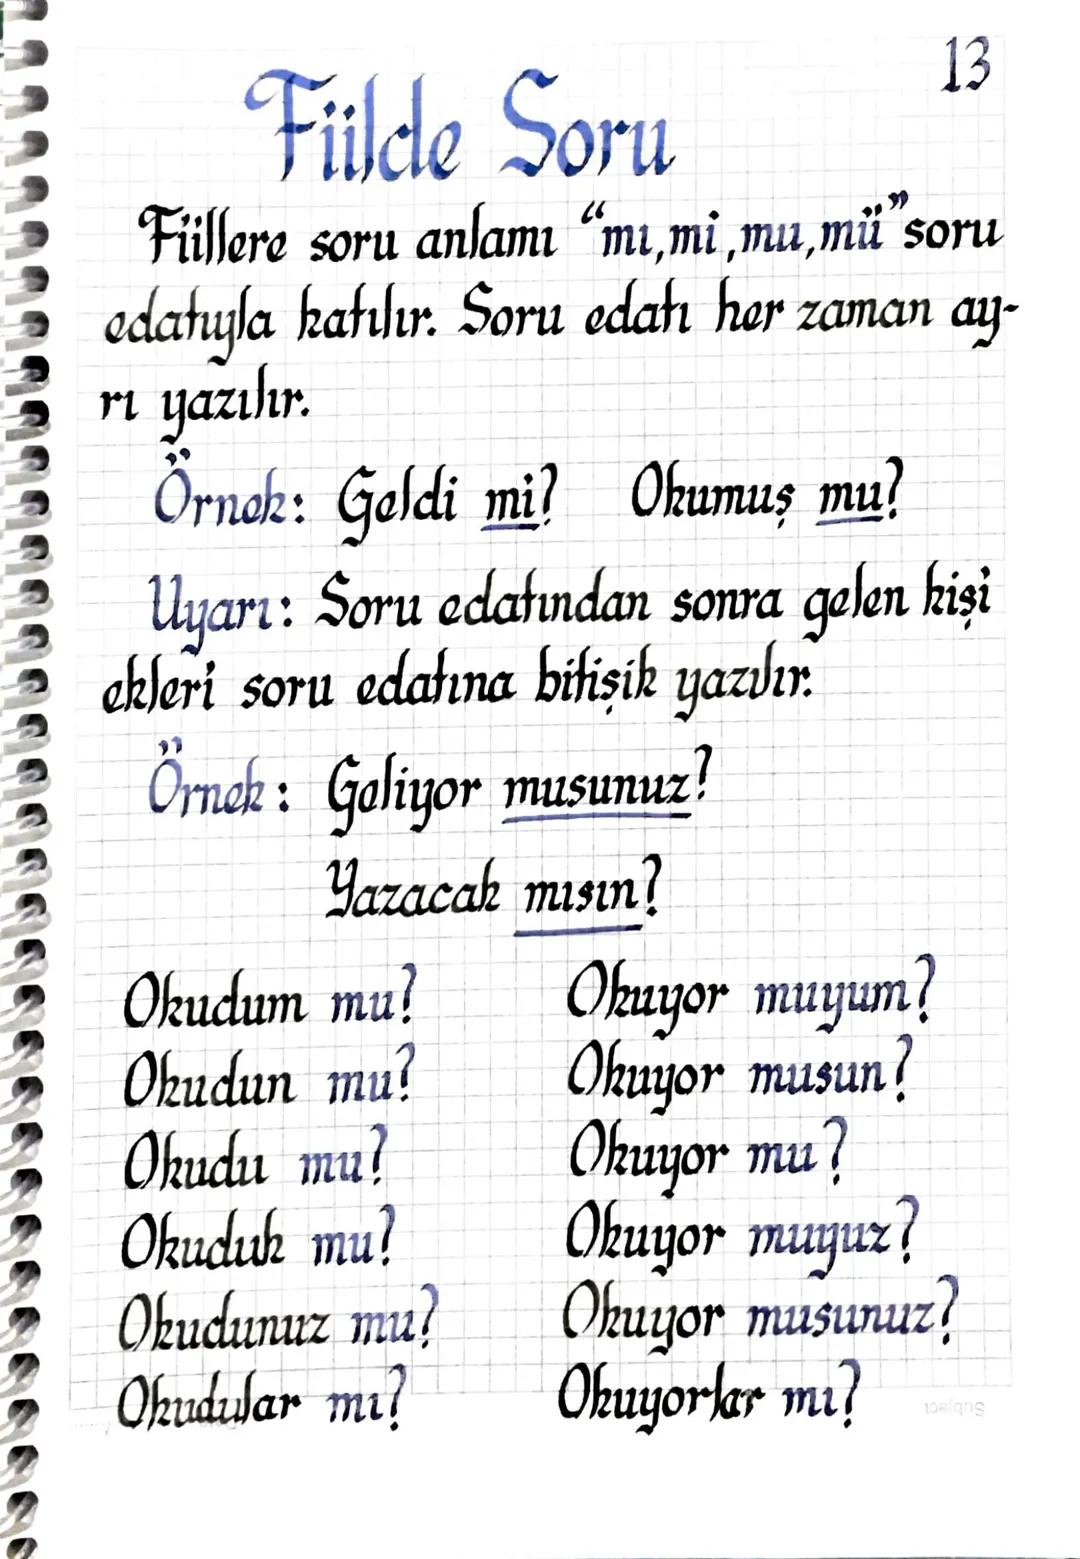 13
Fiilde Soru
Fiillere soru anlamı “mı, mi, mu, mü” soru
edatıyla katılır. Soru edatı her zaman ay-
rı yazılır.
Örnek: Geldi mi? Okumuş mu?
Uyarı: Soru edatından sonra gelen kişi
ekleri soru edatına bitişik yazılır.
Örnek: Geliyor musunuz?
Yazacak mısın?
Okudum mu? Okuyor muyum?
Okudun mu? Okuyor musun?
Okudu mu? Okuyor mu?
Okuduk mu? Okuyor muyuz?
Okudunuz mu? Okuyor musunuz?
Okudular mı? Okuyorlar mı?
Subject